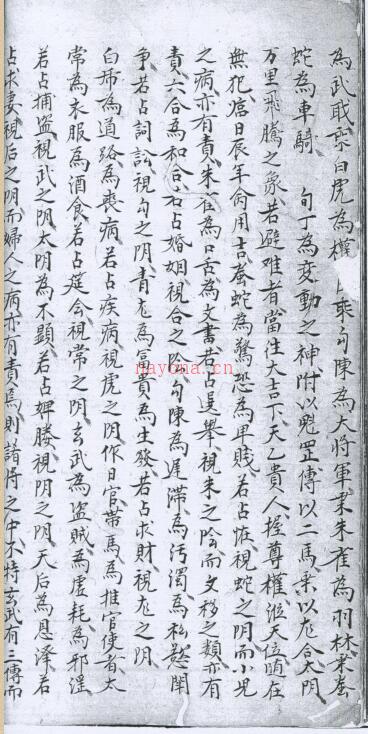 為武職乘白虎為權日乘句陳為大將軍乘朱雀為羽林乘螣
蛇為車騎　旬丁為变動之神附以魁罡傳以二馬乘以龙合太阴
万里飛騰之象若避难者當往大吉下天乙貴人握尊權涖天位随在
無犯宿日辰年命用吉螣蛇為驚恐為卑賤若占怪視蛇之阴而小兒
之病亦有責朱雀為口舌為文書若占選舉視朱之阴而文移之類亦有
責六合為和合若占婚姻視合之阴句陳為遲滯為污濁為私慾鬪
争若占詞訟視勾之阴青龙為富貴為生發若占求財視龙之阴
白乕為道路為喪病若占疾病視虎之阴作日官帶馬為推官使者太
常為衣服為酒食若占筵会視常之阴玄武為盜賊為虛耗為邪淫
若占捕盗視武之阴太阴為不顕若占婢媵視阴之阴天后為恩泽若
占求妻視后之阴而婦人之病亦有責焉則諸将之中不特玄武有三傳而
nayona.cn